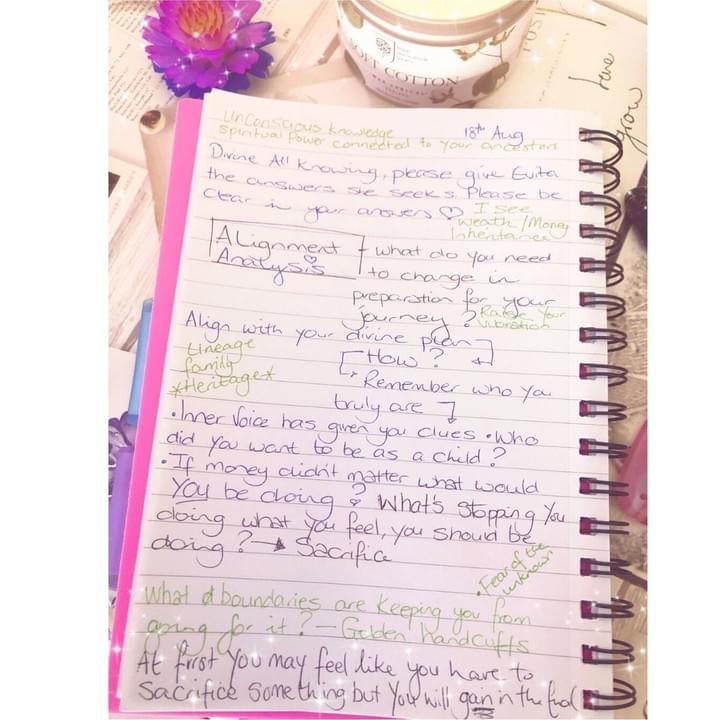 SOFT COTTON
love
grow
Unconscious knowledge
18th Aug
spiritual Power connected to your ancestors
Divine All Knowing, please give Evita
the answers she seeks. Please be
clear in your answers ♡
I see
weath/Money
Inheritance
ALignment
Analysis
- what do you need
to change in
preparation for your
journey?
Raise Your
Vibration
Align with your divine plan
How?
Lineage
family
*Heritage*
Remember who you
truly are
• Inner Voice has given you clues • Who
did you want to be as a child?
• If money didn't matter what would
you be doing? What's stopping you
doing what you feel, you should be
doing? → Sacrifice
• Fear of the
unknown
What boundaries are keeping you from
going for it? - Golden handcuffs
At first you may feel like you have to
Sacrifice something but you will gain in the